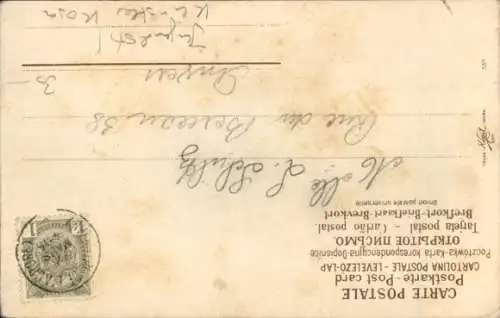 CARTE POSTALE
Postkarte - Post card
CARTOLINA POSTALE - LEVELEZO-LAP
Pocztówka-Karta korespondencyjna-Dopisnice
ОТКРЫТОЕ ПИСЬМО.
Tarjeta postal - Cartão postal.
Brefkort-Briefkaart-Brevkort
Union postale universelle
Melle L. Schultz
Rue du Berceau 38
Anvers
Jugendstil
Künstler
1